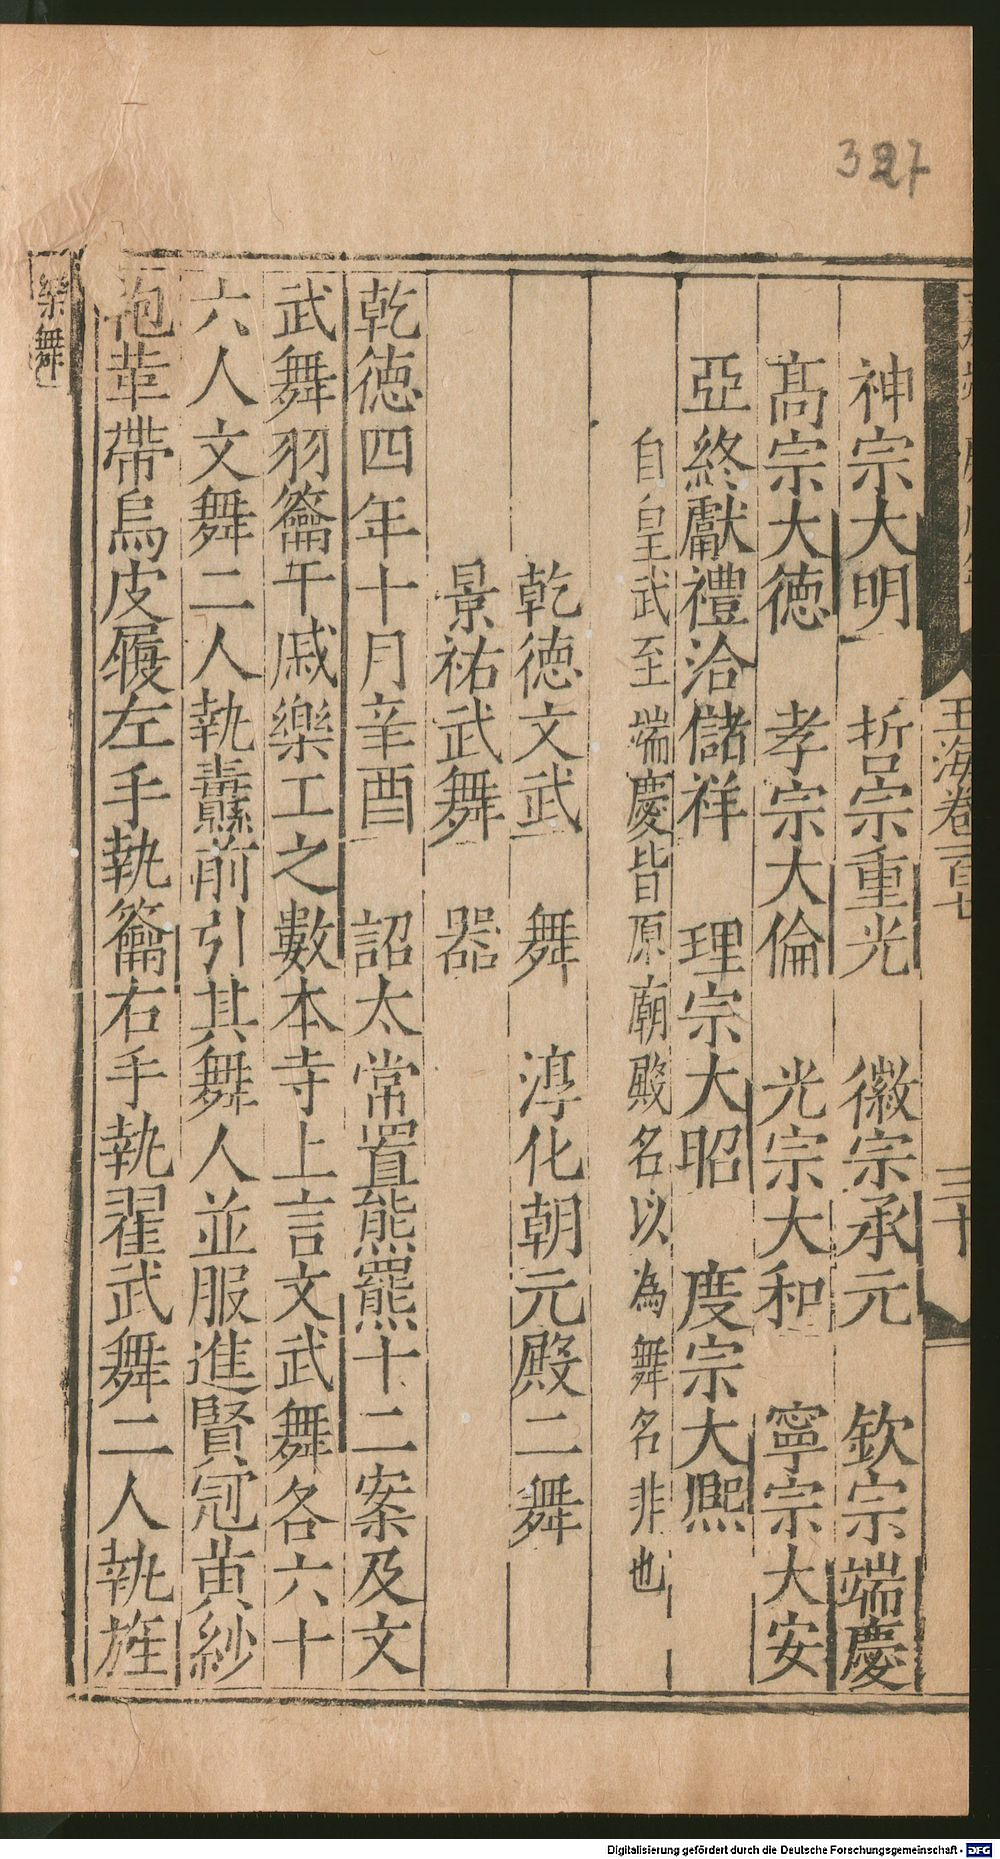 327
玉海卷一百七
三十
神宗大明　哲宗重光　徽宗承元　欽宗端慶
髙宗大德　孝宗大倫　光宗大和　寧宗大安
亞終獻禮洽儲祥　理宗大昭　度宗大熈
自皇武至端慶皆原廟殿名以為舞名非也
乾德文武舞　淳化朝元殿二舞
景祐武舞器
乾德四年十月辛酉　詔太常置熊羆十二案及文
武舞羽籥干戚樂工之數本寺上言文武舞各六十
六人文舞二人執纛前引其舞人並服進賢冠黄紗
袍革帶烏皮履左手執籥右手執翟武舞二人執旌
樂舞
Digitalisierung gefördert durch die Deutsche Forschungsgemeinschaft - DFG